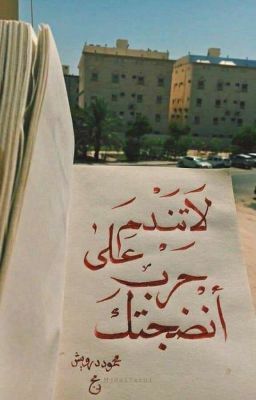 لَا تَنْدَم
عَلىٰ
حَرْبٍ
أَنضجتك
محمود درويش